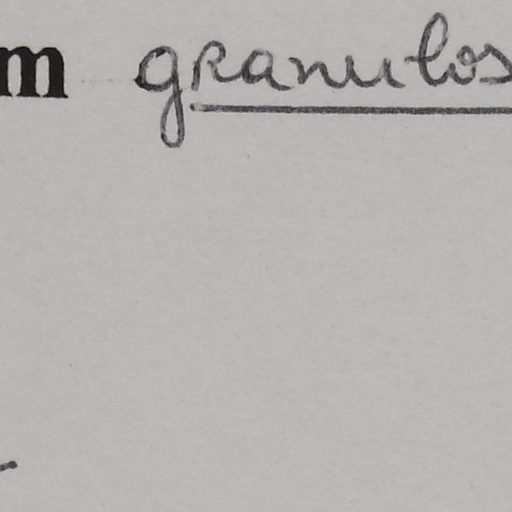 m granulos